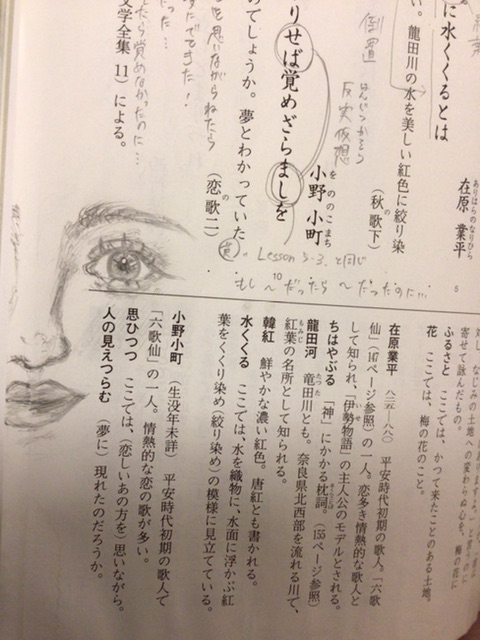 に水くくるとは
在原業平
ありはらのなりひら
い。龍田川の水を美しい紅色に絞り染
(秋歌下)
倒置
はんじつかそう
反実仮想
りせば覚めざらましを
小野小町
をののこまち
のでしょうか。夢とわかっていた
(恋歌二)
を思いながらねたら
でてきた!
たら覚めなかったのに…
文学全集 11)による。
Lesson 3-3 と同じ
もし〜だったら 〜だったのに…
5
10
対し、なじみの土地への変わらぬ心を、梅の花に
寄せて詠んだもの。
ふるさと ここでは、かつて来たことのある土地。
花 ここでは、梅の花のこと。
在原業平 八二五―八八〇 平安時代初期の歌人。「六歌
仙」(147ページ参照)の一人。恋多き情熱的な歌人と
して知られ、「伊勢物語」の主人公のモデルとされる。
ちはやぶる 「神」にかかる枕詞。(155ページ参照)
龍田河 竜田川とも。奈良県北西部を流れる川で、
紅葉の名所として知られる。
韓紅 鮮やかな濃い紅色。唐紅とも書かれる。
水くくる ここでは、水を織物に、水面に浮かぶ紅
葉をくくり染め(絞り染め)の模様に見立てている。
小野小町 (生没年未詳) 平安時代初期の歌人で
「六歌仙」の一人。情熱的な恋の歌が多い。
思ひつつ ここでは、(恋しいあの方を)思いながら。
人の見えつらむ (夢に)現れたのだろうか。